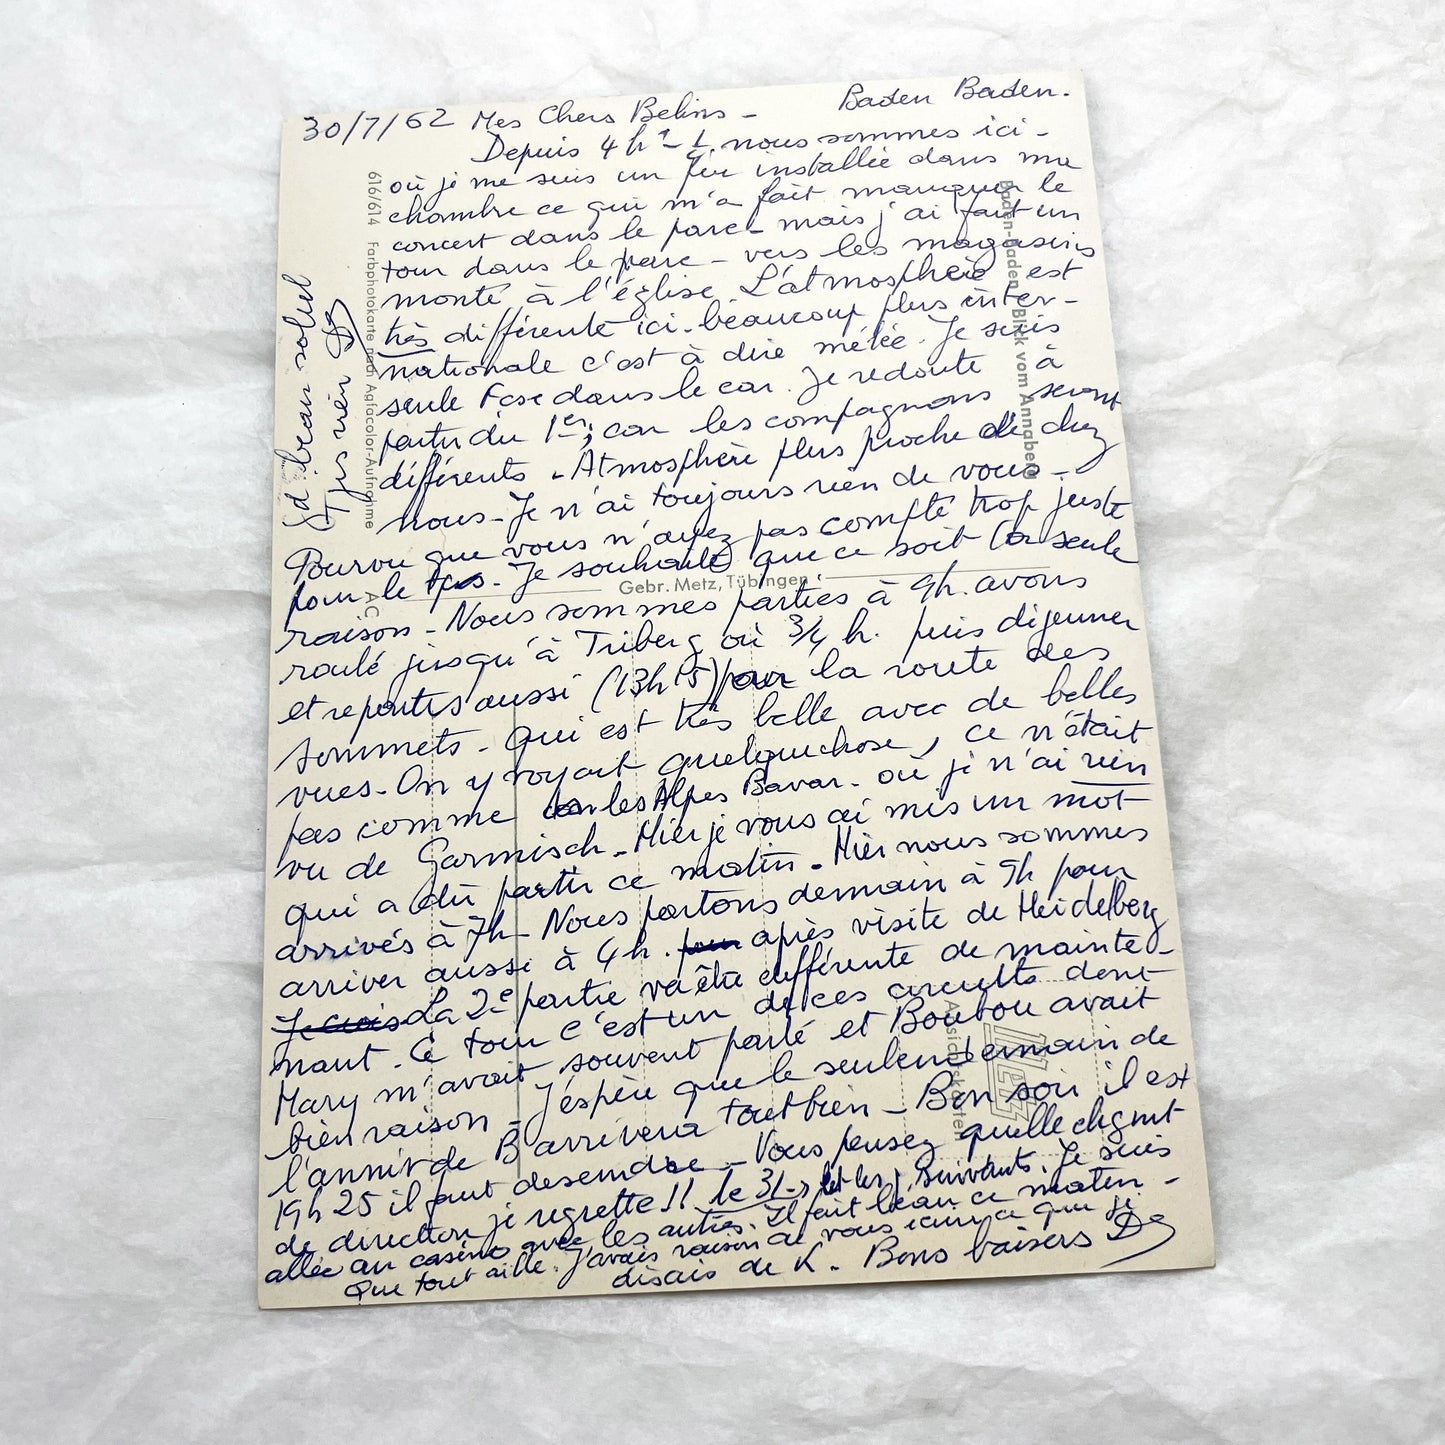 30/7/62 Mes Chers Belins - Baden Baden.
Depuis 4h nous sommes ici -
où je me suis un peu installée dans ma
chambre ce qui m'a fait manquer le
concert dans le parc - mais j'ai fait un
tour dans le parc - vers les magasins
monté à l'église. L'atmosphère est
très différente ici - beaucoup plus inter-
nationale c'est à dire mélée. Je suis
seule Fcse dans le car. Je redoute à
partir du 1er; car les compagnons seront
différents - Atmosphère plus proche de chez
nous - Je n'ai toujours rien de vous -
Pourvu que vous n'ayez pas compté trop juste
pour le tps. Je souhaite que ce soit la seule
raison - Nous sommes parties à 9h. avons
roulé jusqu'à Triberg où 3/4 h. puis déjeuner
et repartis aussi (13h15) pour la route des
sommets - qui est très belle avec de belles
vues - On y voyait quelquechose, ce n'était
pas comme les Alpes Bavar. où je n'ai rien
vu de Garmisch - Hier je vous ai mis un mot
qui a dû partir ce matin - Hier nous sommes
arrivés à 7h - Nous partons demain à 9h pour
arriver aussi à 4h. pour après visite de Heidelberg
Je crois La 2e partie va être différente de mainte-
nant. Ce tour c'est un de ces circuits dont
Mary m'avait souvent parlé et Boubou avait
bien raison - J'espère que le seulendemain de
l'annir de B arrivera tout bien - Bon soir il est
19h25 il faut descendre - Vous pensez quelle chgmt
de direction je regrette!! le 31 - et les j. suivants. Je suis
allée au casino avec les autres. Il fait beau ce matin -
Que tout aille. J'avais raison de vous écrire ce que je
disais de K. Bons baisers D
(d. beau soleil
Tjrs rien
616/614 Farbphotokarte nach Agfacolor-Aufnahme
AC
Baden-Baden, Blick vom Annaberg
Gebr. Metz, Tübingen
Metz
Ansichtskarten